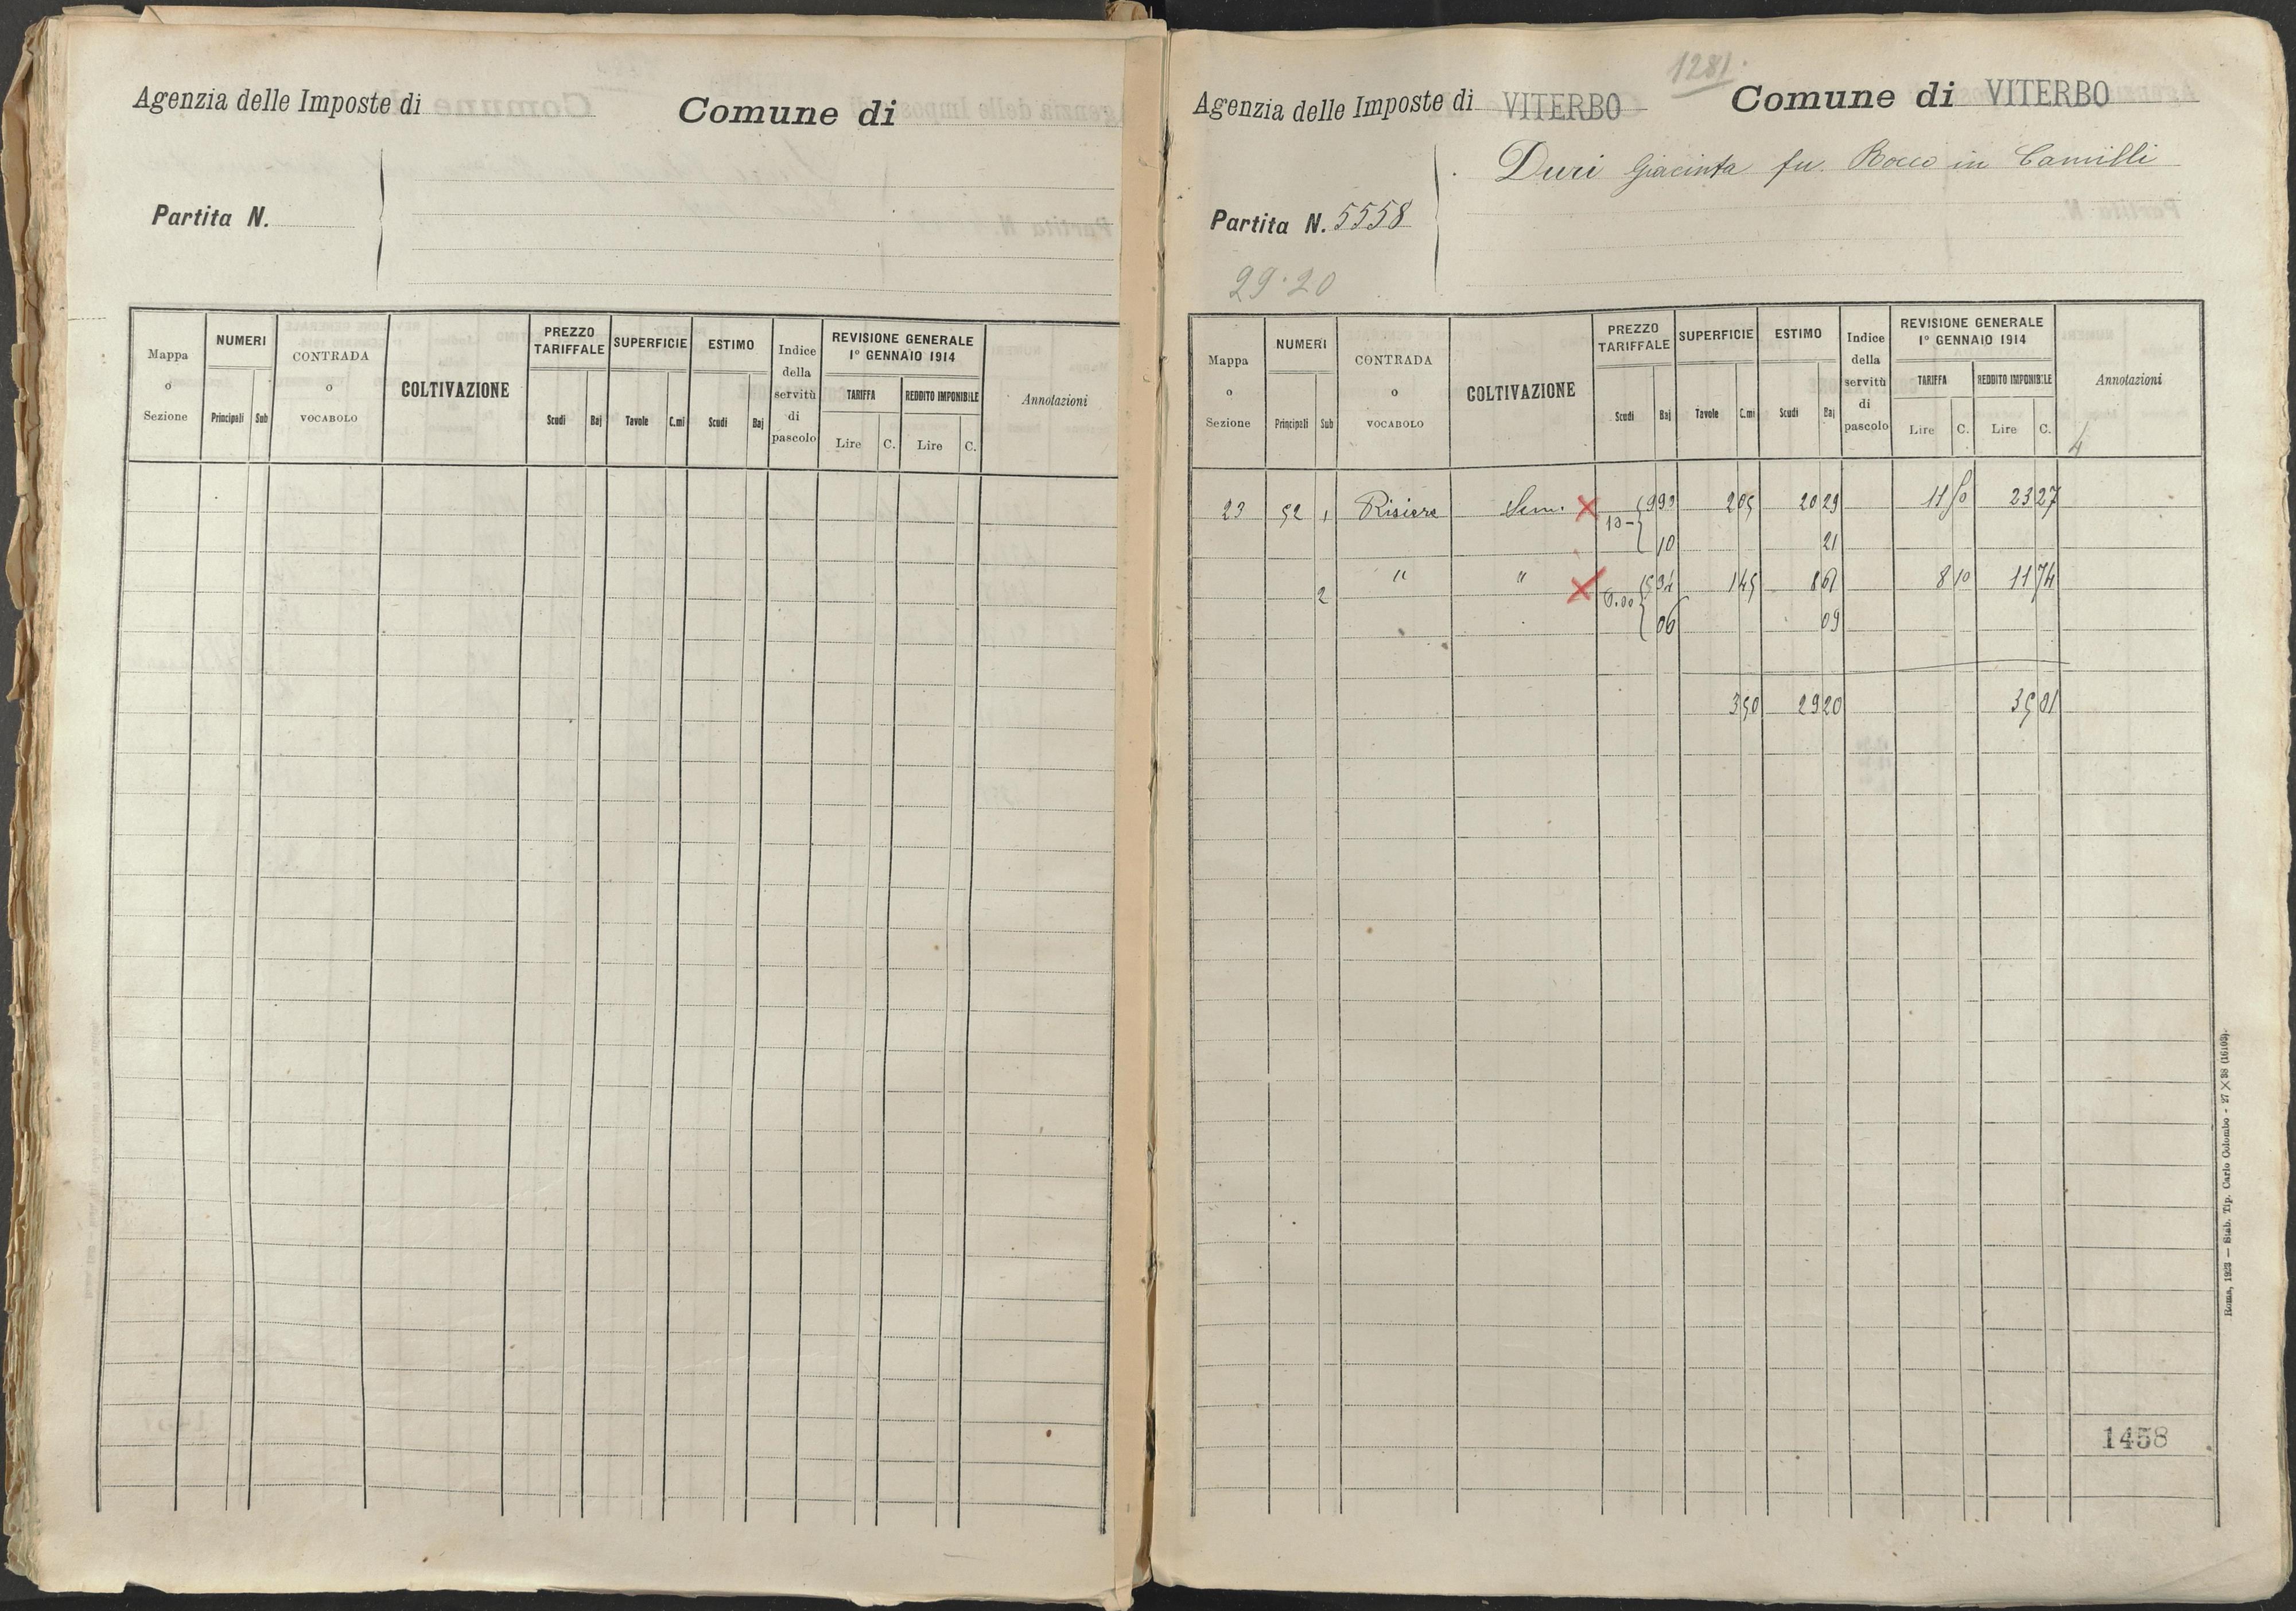 Agenzia delle Imposte di Comune di
Partita N.
Mappa o Sezione
NUMERI
Principali Sub
CONTRADA o VOCABOLO
COLTIVAZIONE
PREZZO TARIFFALE
Scudi Baj
SUPERFICIE
Tavole C.mi
ESTIMO
Scudi Baj
Indice della servitù di pascolo
REVISIONE GENERALE
1º GENNAIO 1914
TARIFFA REDDITO IMPONIBILE
Lire C. Lire C.
Annotazioni
1281.
Agenzia delle Imposte di VITERBO Comune di VITERBO
Duri Giacinta fu. Rocco in Camilli
Partita N. 5558
29.20
Mappa o Sezione
NUMERI
Principali Sub
CONTRADA o VOCABOLO
COLTIVAZIONE
PREZZO TARIFFALE
Scudi Baj
SUPERFICIE
Tavole C.mi
ESTIMO
Scudi Baj
Indice della servitù di pascolo
REVISIONE GENERALE
1º GENNAIO 1914
TARIFFA REDDITO IMPONIBILE
Lire C. Lire C.
Annotazioni
4
23 52 1 Risiere Sem. 993 2 05 20 29 11 50 23 27
10 21
2 " " 594 1 45 8 61 8 10 11 74
6.00 06 09
3 50 29 20 35 01
1458
Roma, 1923 — Stab. Tip. Carlo Colombo - 27 X 38 (16103).